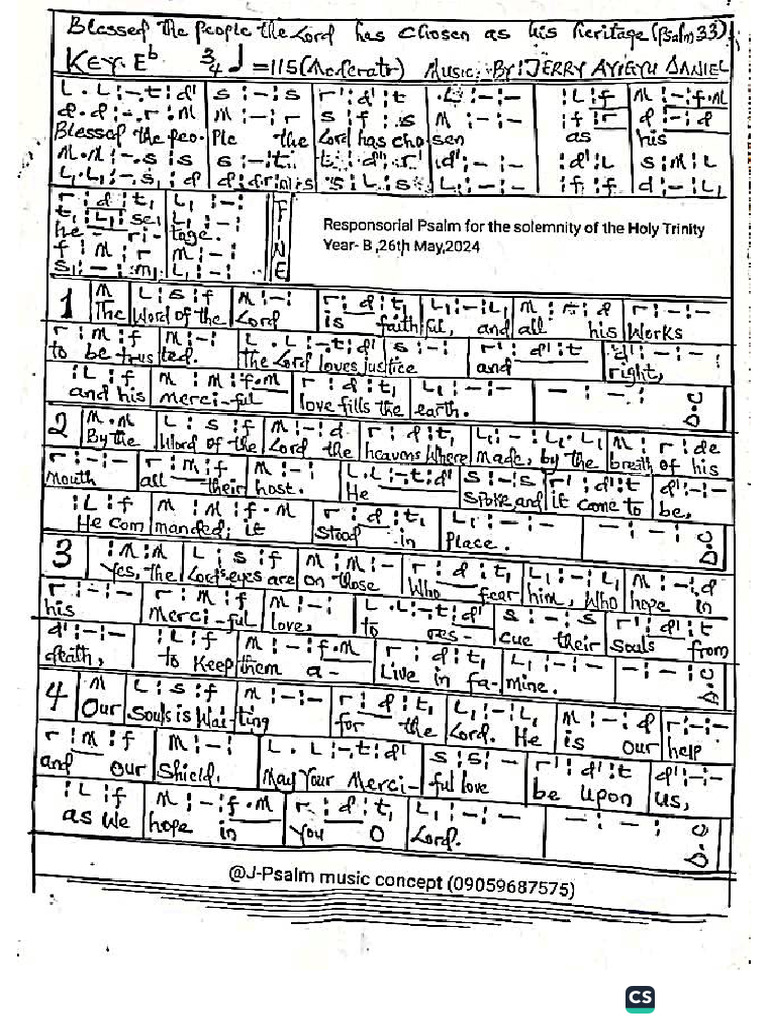 Blessed the people the Lord has chosen as his heritage (Psalm 33).
KEY: Eb 3/4 ♩ =115 (Moderato) Music: By: JERRY AYIEYU DANIEL
L . L :- t : d' | s :- : s | r' : d' : t | L :- :- | : L : f | m :- f . m
d . d :- r : m | m :- : r | s : f : s | m :- :- | : f : r | d :- : d
Blessed the peo- ple the Lord has chosen as his
r : d : t, | L, :- :
he - ri - tage.
f : m : r | m :- :
FINE
Responsorial Psalm for the solemnity of the Holy Trinity
Year- B ,26th May,2024
1 m | L : s : f | m :- : | r : d : t, | L, :- : L, | m :- : d | r :- :-
The Word of the Lord is faithful, and all his works
r : m : f | m :- : | L . L :- t : d' | s :- : | r' : d' : t | d' :- :-
to be trusted. The Lord loves justice and right,
: L : f | m : m : f . m | r : d : t, | L, :- :- | - :- :-
and his merci-ful love fills the earth.
2 m . m | L : s : f | m :- : d | r : d : t, | L, :- L, . L, | m : r : d
By the Word of the Lord the heavens where made, by the breath of his
r :- :- | r : m : f | m :- : | L . L :- t : d' | s :- : s | r' : d' : t | d' :- :-
mouth all their host. He spoke and it came to be,
: L : f | m : m : f . m | r : d : t, | L, :- :- | - :- :-
He com manded; it stood in place.
3 : m . m | L : s : f | m : m :- | r : d : t, | L, :- : L, | m :- : d
Yes, the Lord's eyes are on those who fear him, who hope in
r :- :- | r : m : f | m :- : | L . L :- t : d' | s :- : s | r' : d' : t
his merci-ful love, to res- cue their souls from
d' :- :- | : L : f | m :- : f . m | r : d : t, | L, :- :- | - :- :-
death, to keep them a- live in fa-mine.
4 m | L : s : f | m :- : | r : d : t, | L, :- : L, | m :- : d | r :- :-
Our Souls is wai-ting for the Lord. He is our help
r : m : f | m :- : | L . L :- t : d' | s : s :- | r' : d' : t | d' :- :-
and our shield. May your merci- ful love be upon us,
: L : f | m :- : f . m | r : d : t, | L, :- :- | - :- :-
as we hope in you O Lord.
@J-Psalm music concept (09059687575)
CS